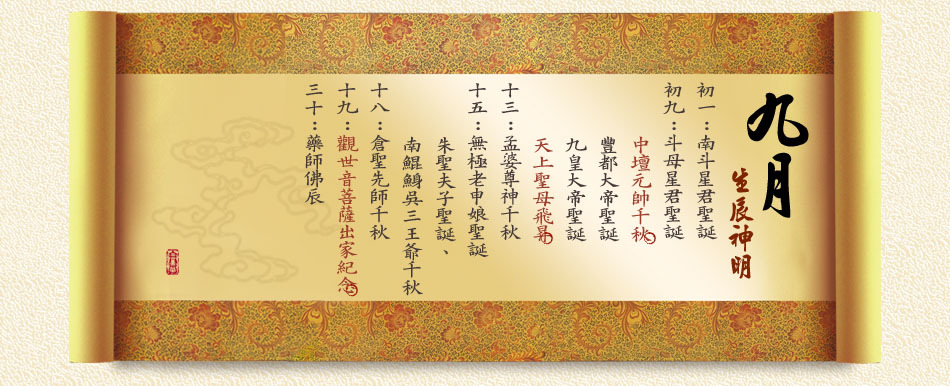 九月
生辰神明
初一：南斗星君聖誕
初九：斗母星君聖誕
中壇元帥千秋
豐都大帝聖誕
九皇大帝聖誕
天上聖母飛昇
十三：孟婆尊神千秋
十五：無極老申娘聖誕
朱聖夫子聖誕、
南鯤鯓吳三王爺千秋
十八：倉聖先師千秋
十九：觀世音菩薩出家紀念
三十：藥師佛辰